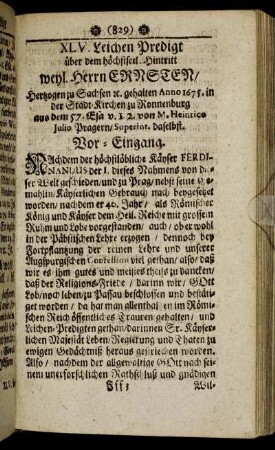 (829)
XLV. Leichen Predigt
über dem höchstseel. Hintritt
weyl. Herrn ERNSTEN/
Hertzogen zu Sachsen ꝛc. gehalten Anno 1675. in
der Stadt-Kirchen zu Ronnenburg
aus dem 57. Esa v. 1 2. von M. Heinrico
Julio Pragern/ Superint. daselbst.
Vor-Eingang.
NAchdem der höchstlöbliche Käyser FERDI-
NANDUS der I. dieses Nahmens von die-
ser Welt geschieden/ und zu Prag/ nebst seiner
mahlin/ Käyserlichen Gebrauch nach/ beygesetzet
worden/ nachdem er 40. Jahr/ als Römischer
König und Käyser dem Heil. Reiche mit grossem
Ruhm und Lobe vorgestanden/ auch/ ober wohl
in der Päbstischen Lehre erzogen/ dennoch bey
Fortpflantzung der reinen Lehre und unserer
Augspurgischen Confession viel gethan/ also/ daß
wir es ihm gutes und meistes theils zu dancken/
daß der Religions-Friede/ darinn wir/ GOtt
Lob/ noch leben/ zu Passau beschlossen und bestäti-
get worden/ da hat man allenthalben im Römi-
schen Reich öffentliches Trauren gehalten/ und
Leichen-Predigten gethan/ darinnen Sr. Käyser-
lichen Majestät Leben/ Regierung und Thaten zu
ewigen Gedächtniß heraus gestrichen worden.
Also/ nachdem der allgewaltige GOtt nach sei-
nem unerforschlichen Rathschluß und gnädigen
Wil-